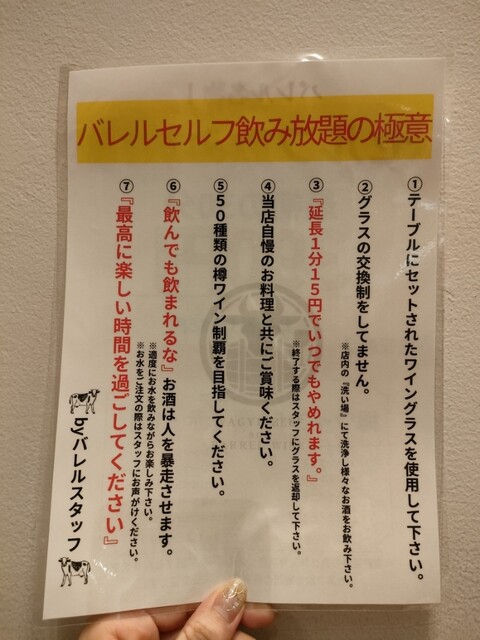 バレルセルフ飲み放題の極意
①テーブルにセットされたワイングラスを使用して下さい。
②グラスの交換制をしてません。
※店内の『洗い場』にて洗浄し様々なお酒をお飲み下さい。
③『延長1分15円でいつでもやめれます。』
※終了する際はスタッフにグラスを返却して下さい。
④当店自慢のお料理と共にご賞味ください。
⑤50種類の樽ワイン制覇を目指してください。
⑥『飲んでも飲まれるな』お酒は人を暴走させます。
※適度にお水を飲みながらお楽しみ下さい。
※お水をご注文の際はスタッフにお声がけください。
⑦『最高に楽しい時間を過ごしてください』
byバレルスタッフ